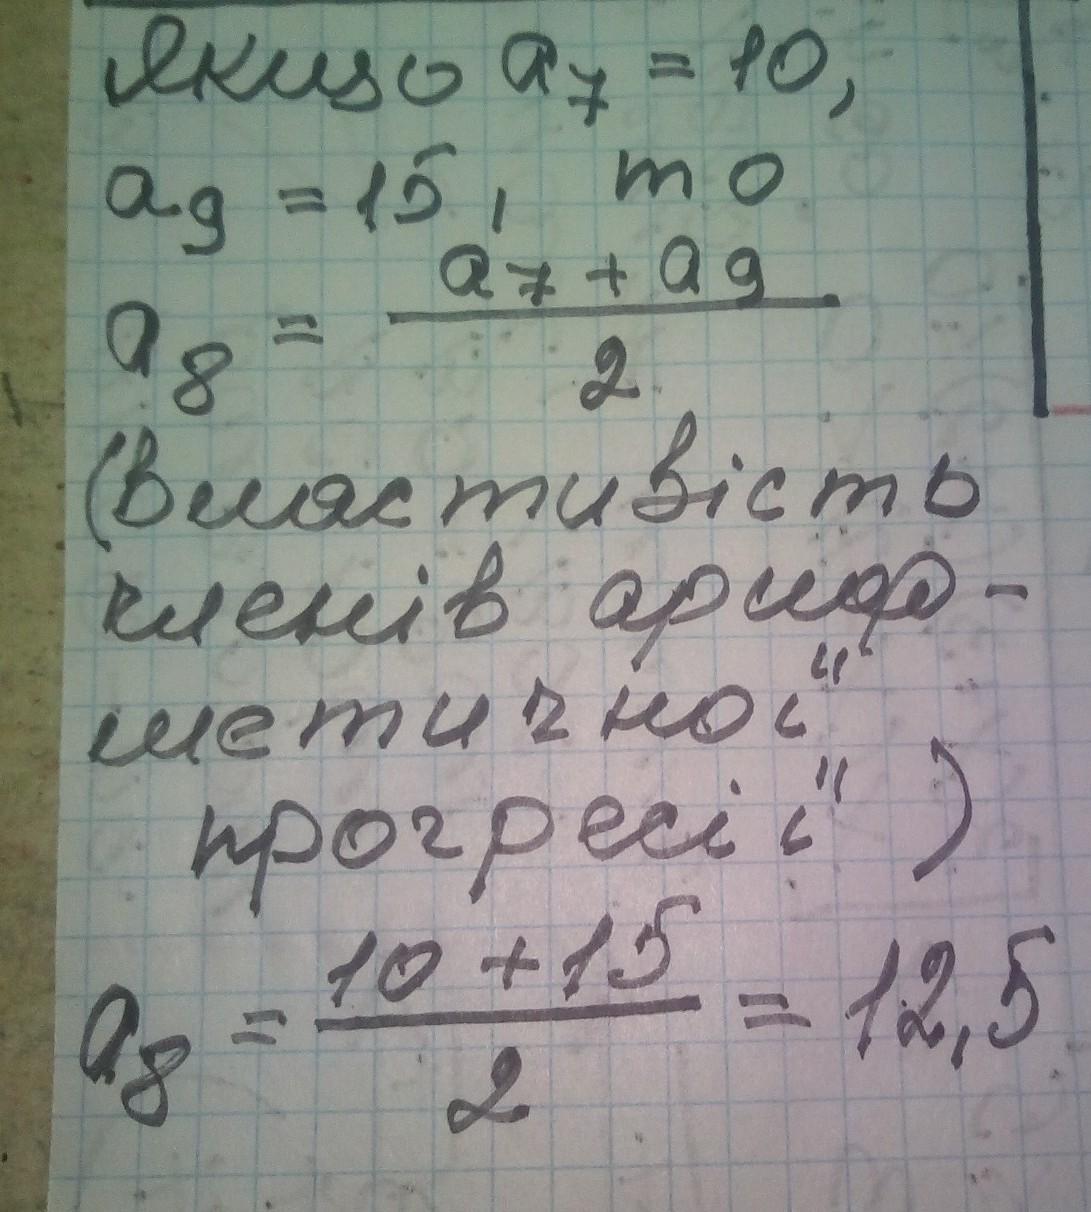 Якщо a₇ = 10,
a₉ = 15, то
a₈ = (a₇ + a₉)/2
(властивість
членів ариф-
метичної
прогресії)
a₈ = (10 + 15)/2 = 12,5